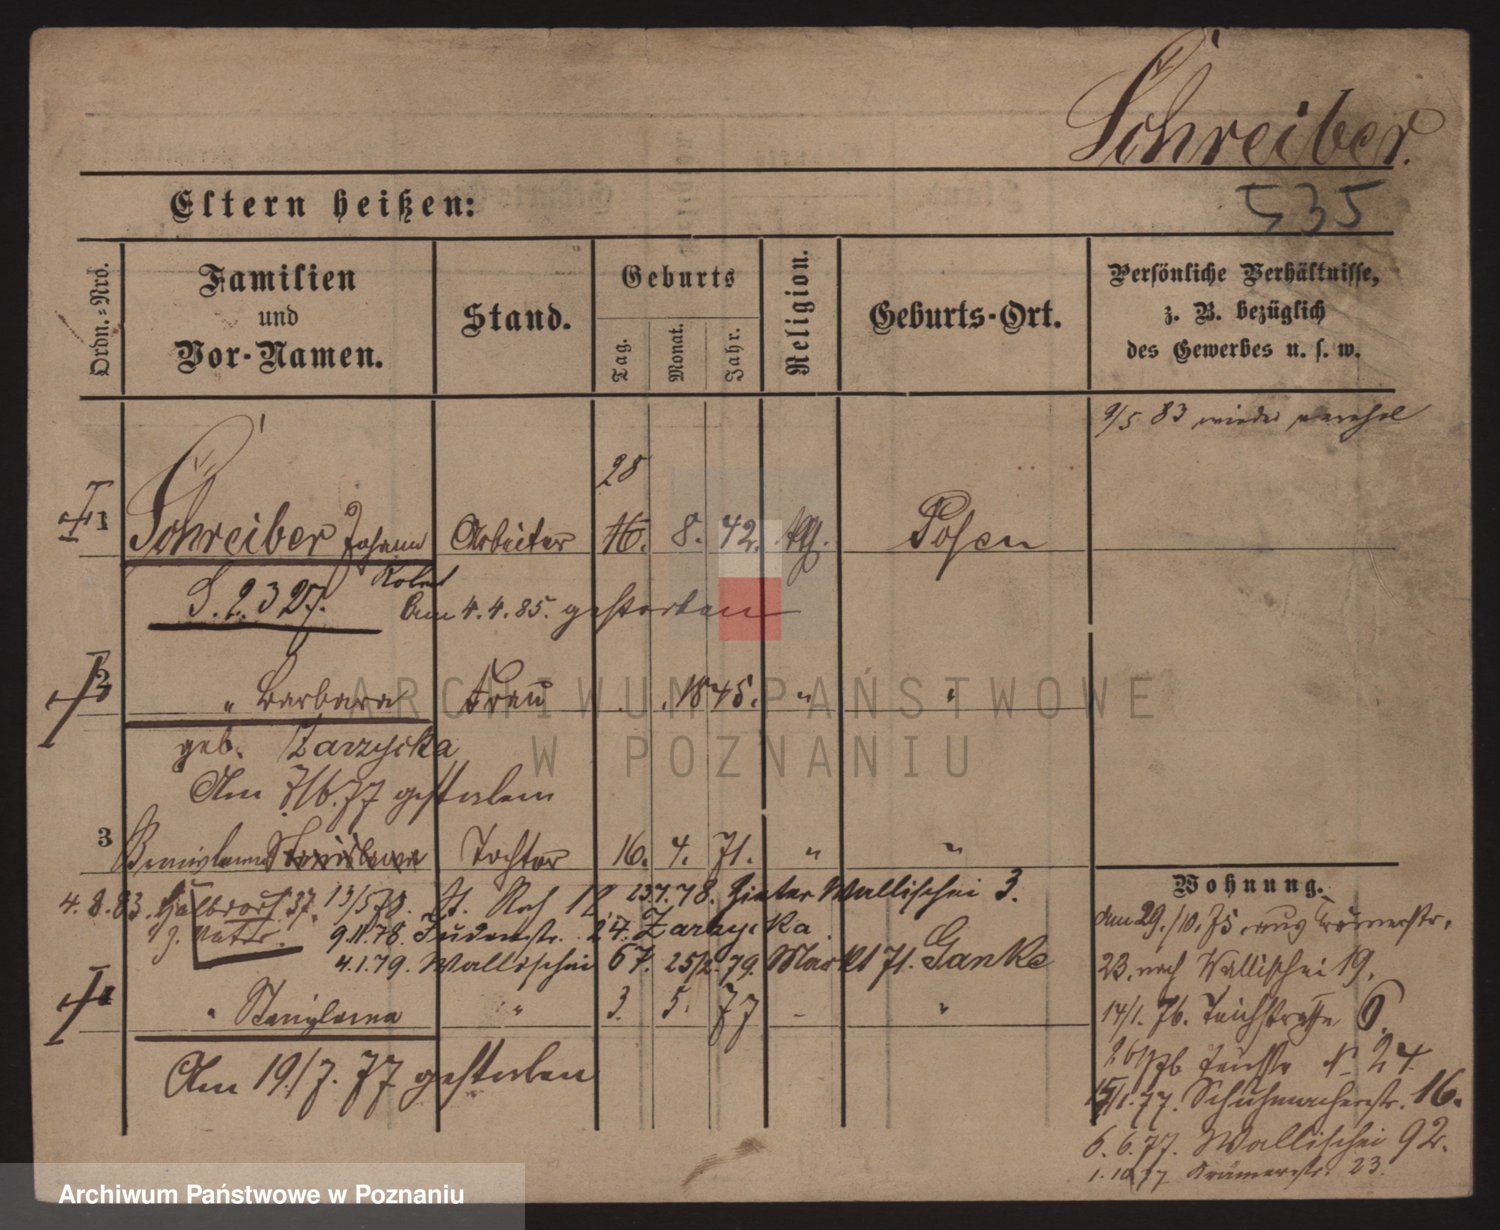 Schreiber.
Eltern heißen:
535
Ordn.-Nro.
Familien
und
Vor-Namen.
Stand.
Geburts
Tag.
Monat.
Jahr.
Religion.
Geburts-Ort.
Persönliche Verhältnisse,
z. B. bezüglich
des Gewerbes u. s. w.
9/5 83 wieder
28
1 Schreiber Johann Arbeiter 16. 8. 42. Posen
S. 2327. Am 4. 4. 85. gestorben
2 " Barbara Frau 1845. " "
geb. Zarzycka
Am 7/6. 77 gestorben
3 Stanislawa Tochter 16. 4. 71. " "
Wohnung.
4. 8. 83. Halbdorf 37. 13/5 78. St. Roch 12 23.7.78. Hinter Wallischei 3.
9.11.78. Judenstr. 24. Zarzycka
4.1.79. Wallischei 67. 25/2. 79. Markt 71. Ganke
4 " Stanislawa " 3. 5. 77 "
Am 19./7. 77 gestorben
den 29./10. 75 aus
23. nach Wallischei 19.
14/1. 76. Teichstraße 6.
No 24.
15/1. 77. Schuhmacherstr. 16.
6. 6. 77. Wallischei 92.
1. 10. 77 Krämerstr. 23.
ARCHIWUM PAŃSTWOWE
W POZNANIU
Archiwum Państwowe w Poznaniu